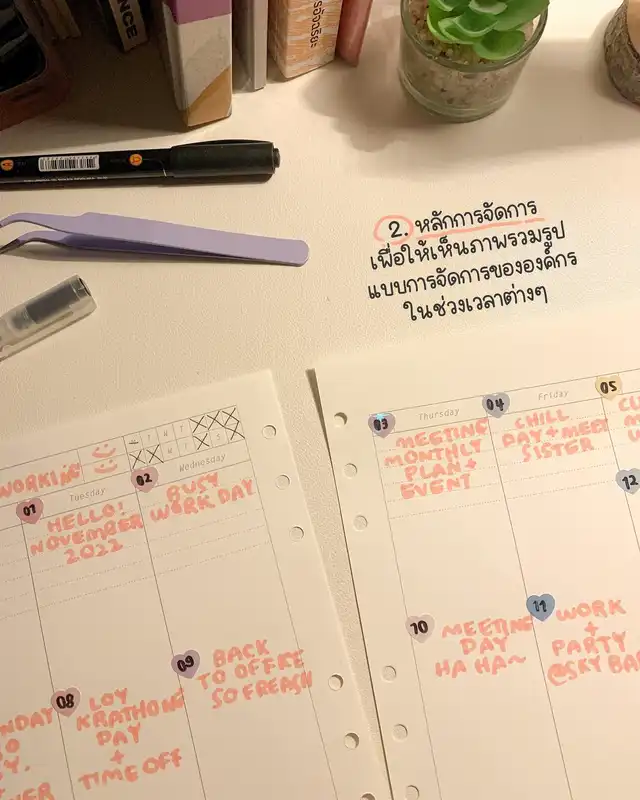 2. หลักการจัดการ
เพื่อให้เห็นภาพรวมรูป
แบบการจัดการขององค์กร
ในช่วงเวลาต่างๆ
WORKING
T W T
W T S
Tuesday
Wednesday
01
HELLO!
NOVEMBER
2022
02
BUSY
WORK DAY
Thursday
Friday
03
MEETING
MONTHLY
PLAN +
EVENT
04
CHILL
DAY + MEET
SISTER
05
08
LOY
KRATHONG
DAY
+
TIME OFF
09
BACK
TO OFFICE
SO FREASH
10
MEETING
DAY
HA HA~
11
WORK
+
PARTY
@SKY BAR
12